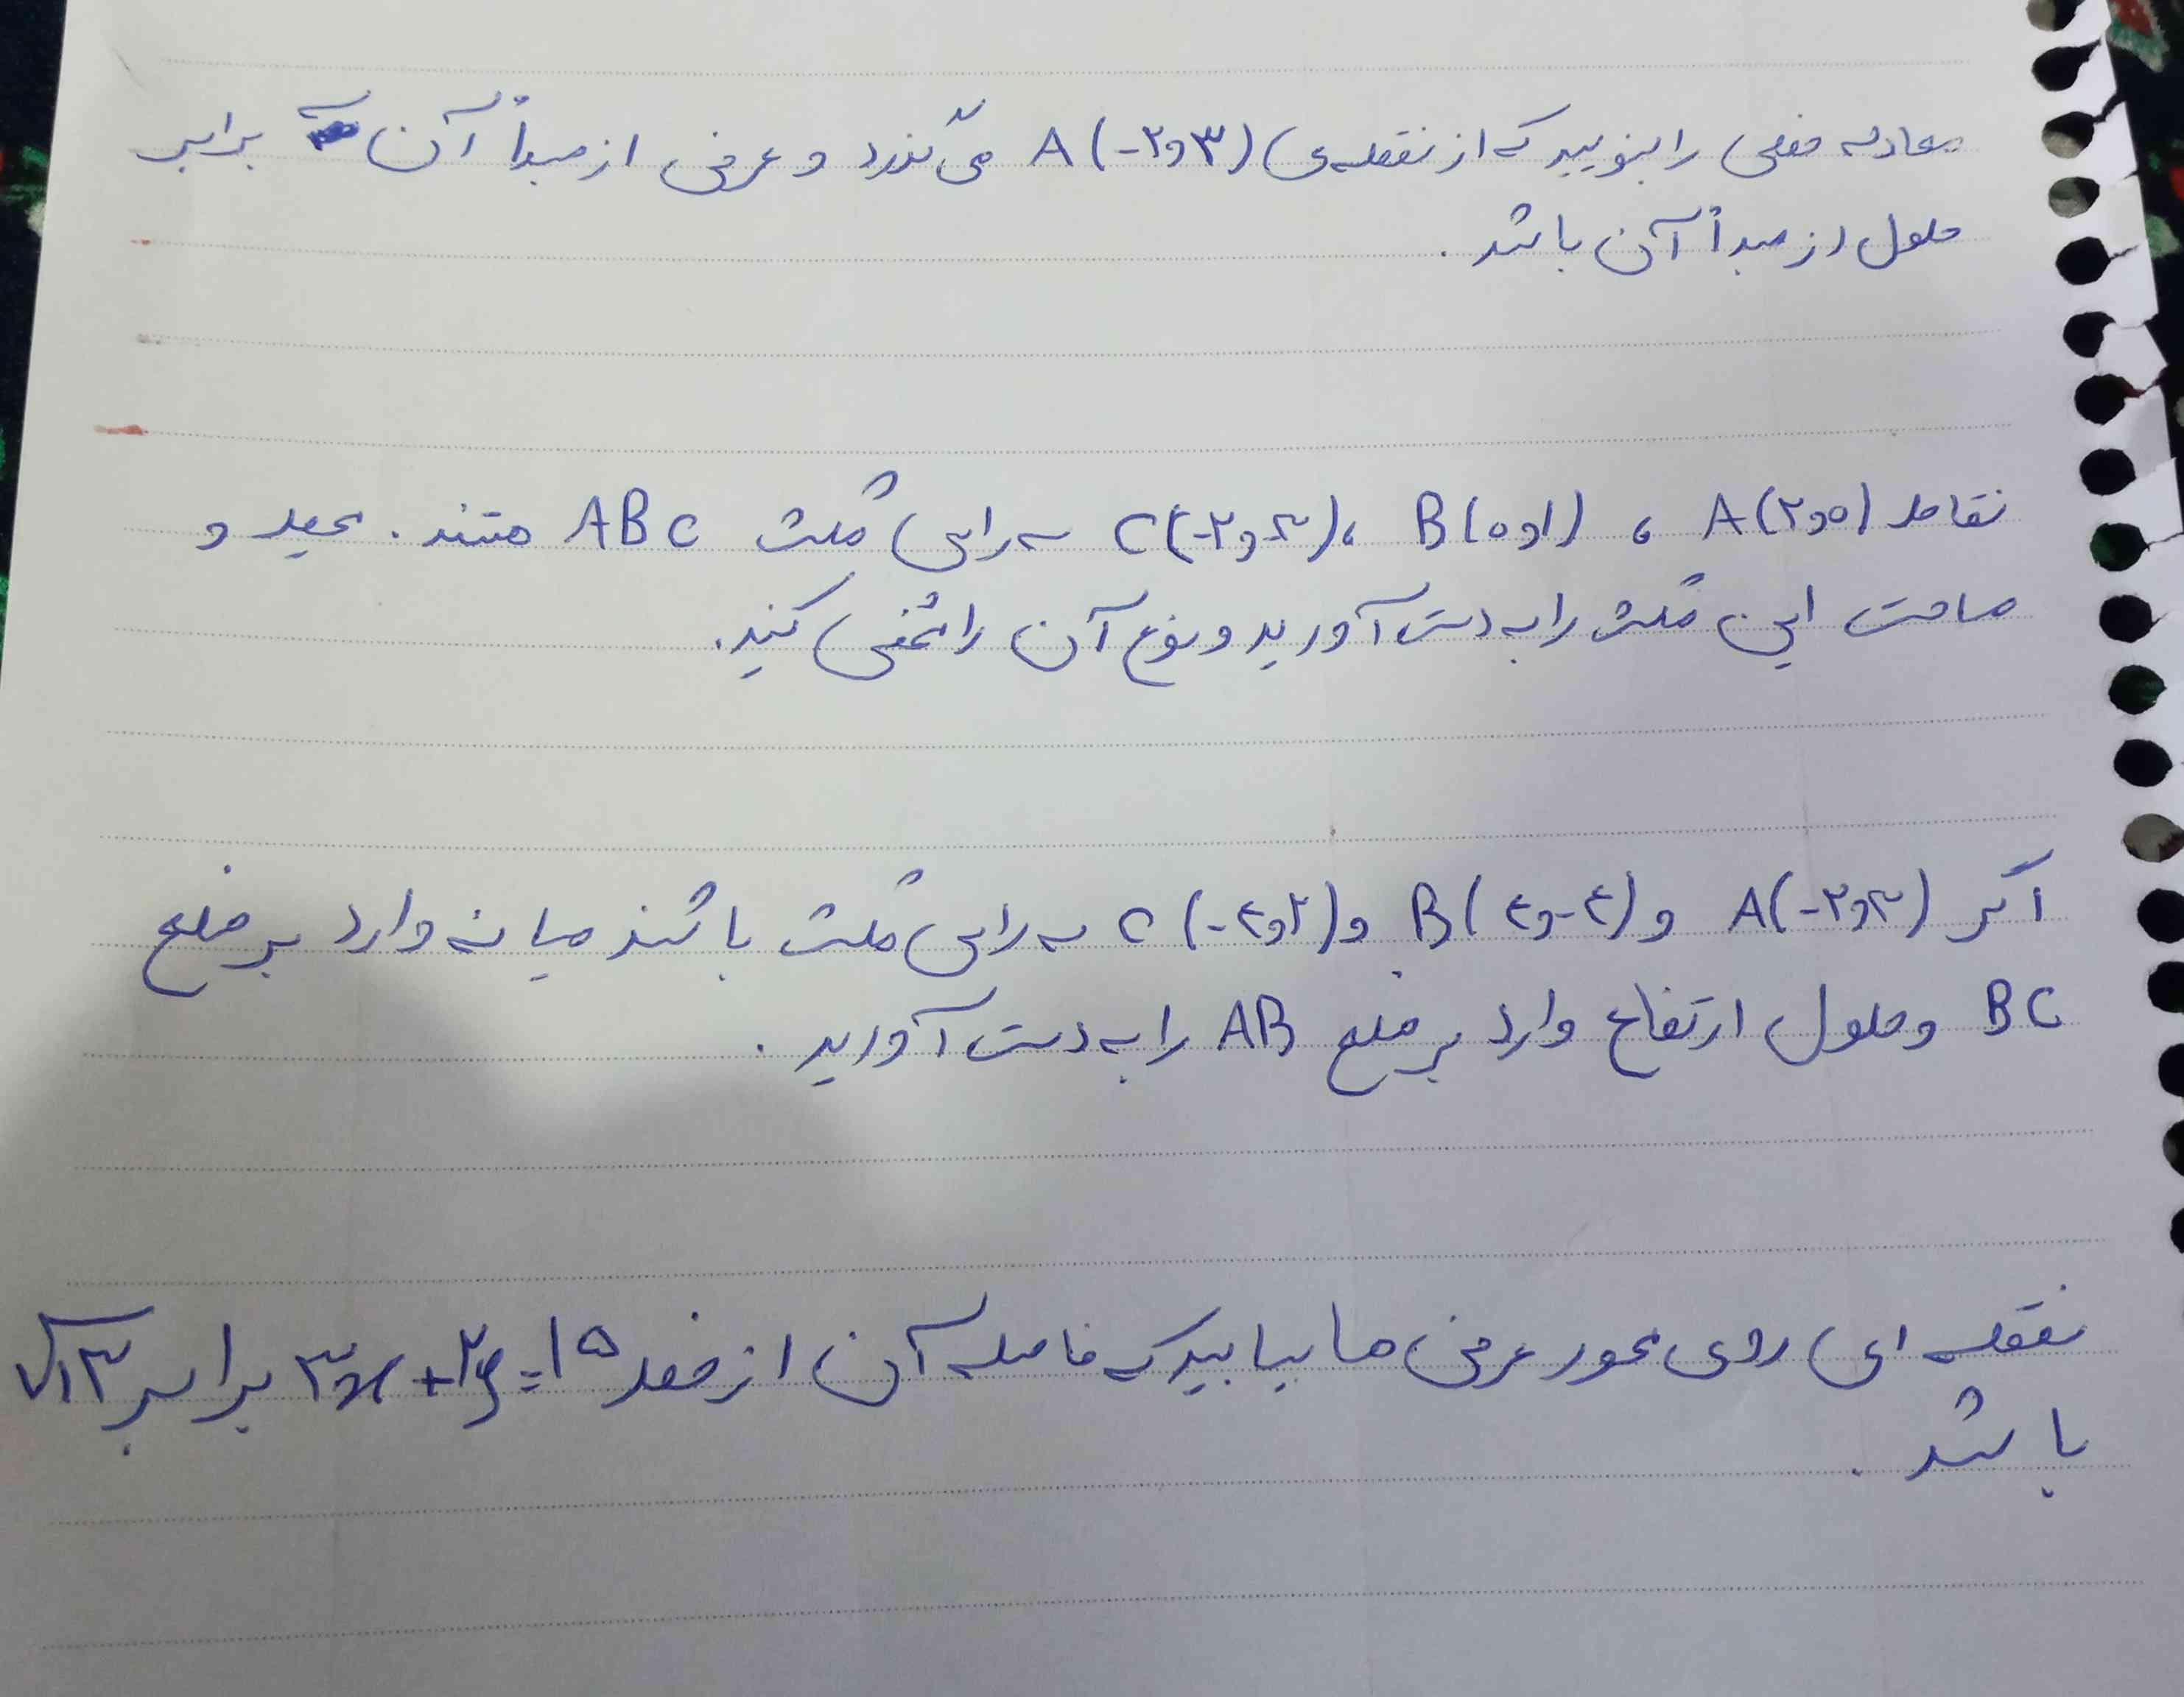 معادله خطی را بنویسید که از نقطه‌ی A(-۲و۳) می‌گذرد و عرض از مبدأ آن برابر
طول از مبدأ آن باشد.
نقاط A(۲و۰) ، B(۰و۱) ، C(-۲و-۳) سه رأس مثلث ABC هستند. محیط و
مساحت این مثلث را به دست آورید و نوع آن را مشخص کنید.
اگر A(-۲و۳) و B(۴و-۴) و C(-۴و۲) سه رأس مثلث باشند میانه وارد بر ضلع
BC و طول ارتفاع وارد بر ضلع AB را به دست آورید.
نقطه ای روی محور عرض ها بیابید که فاصله آن از خط ۳x+۲y=۱۵ برابر √۱۳
باشد.